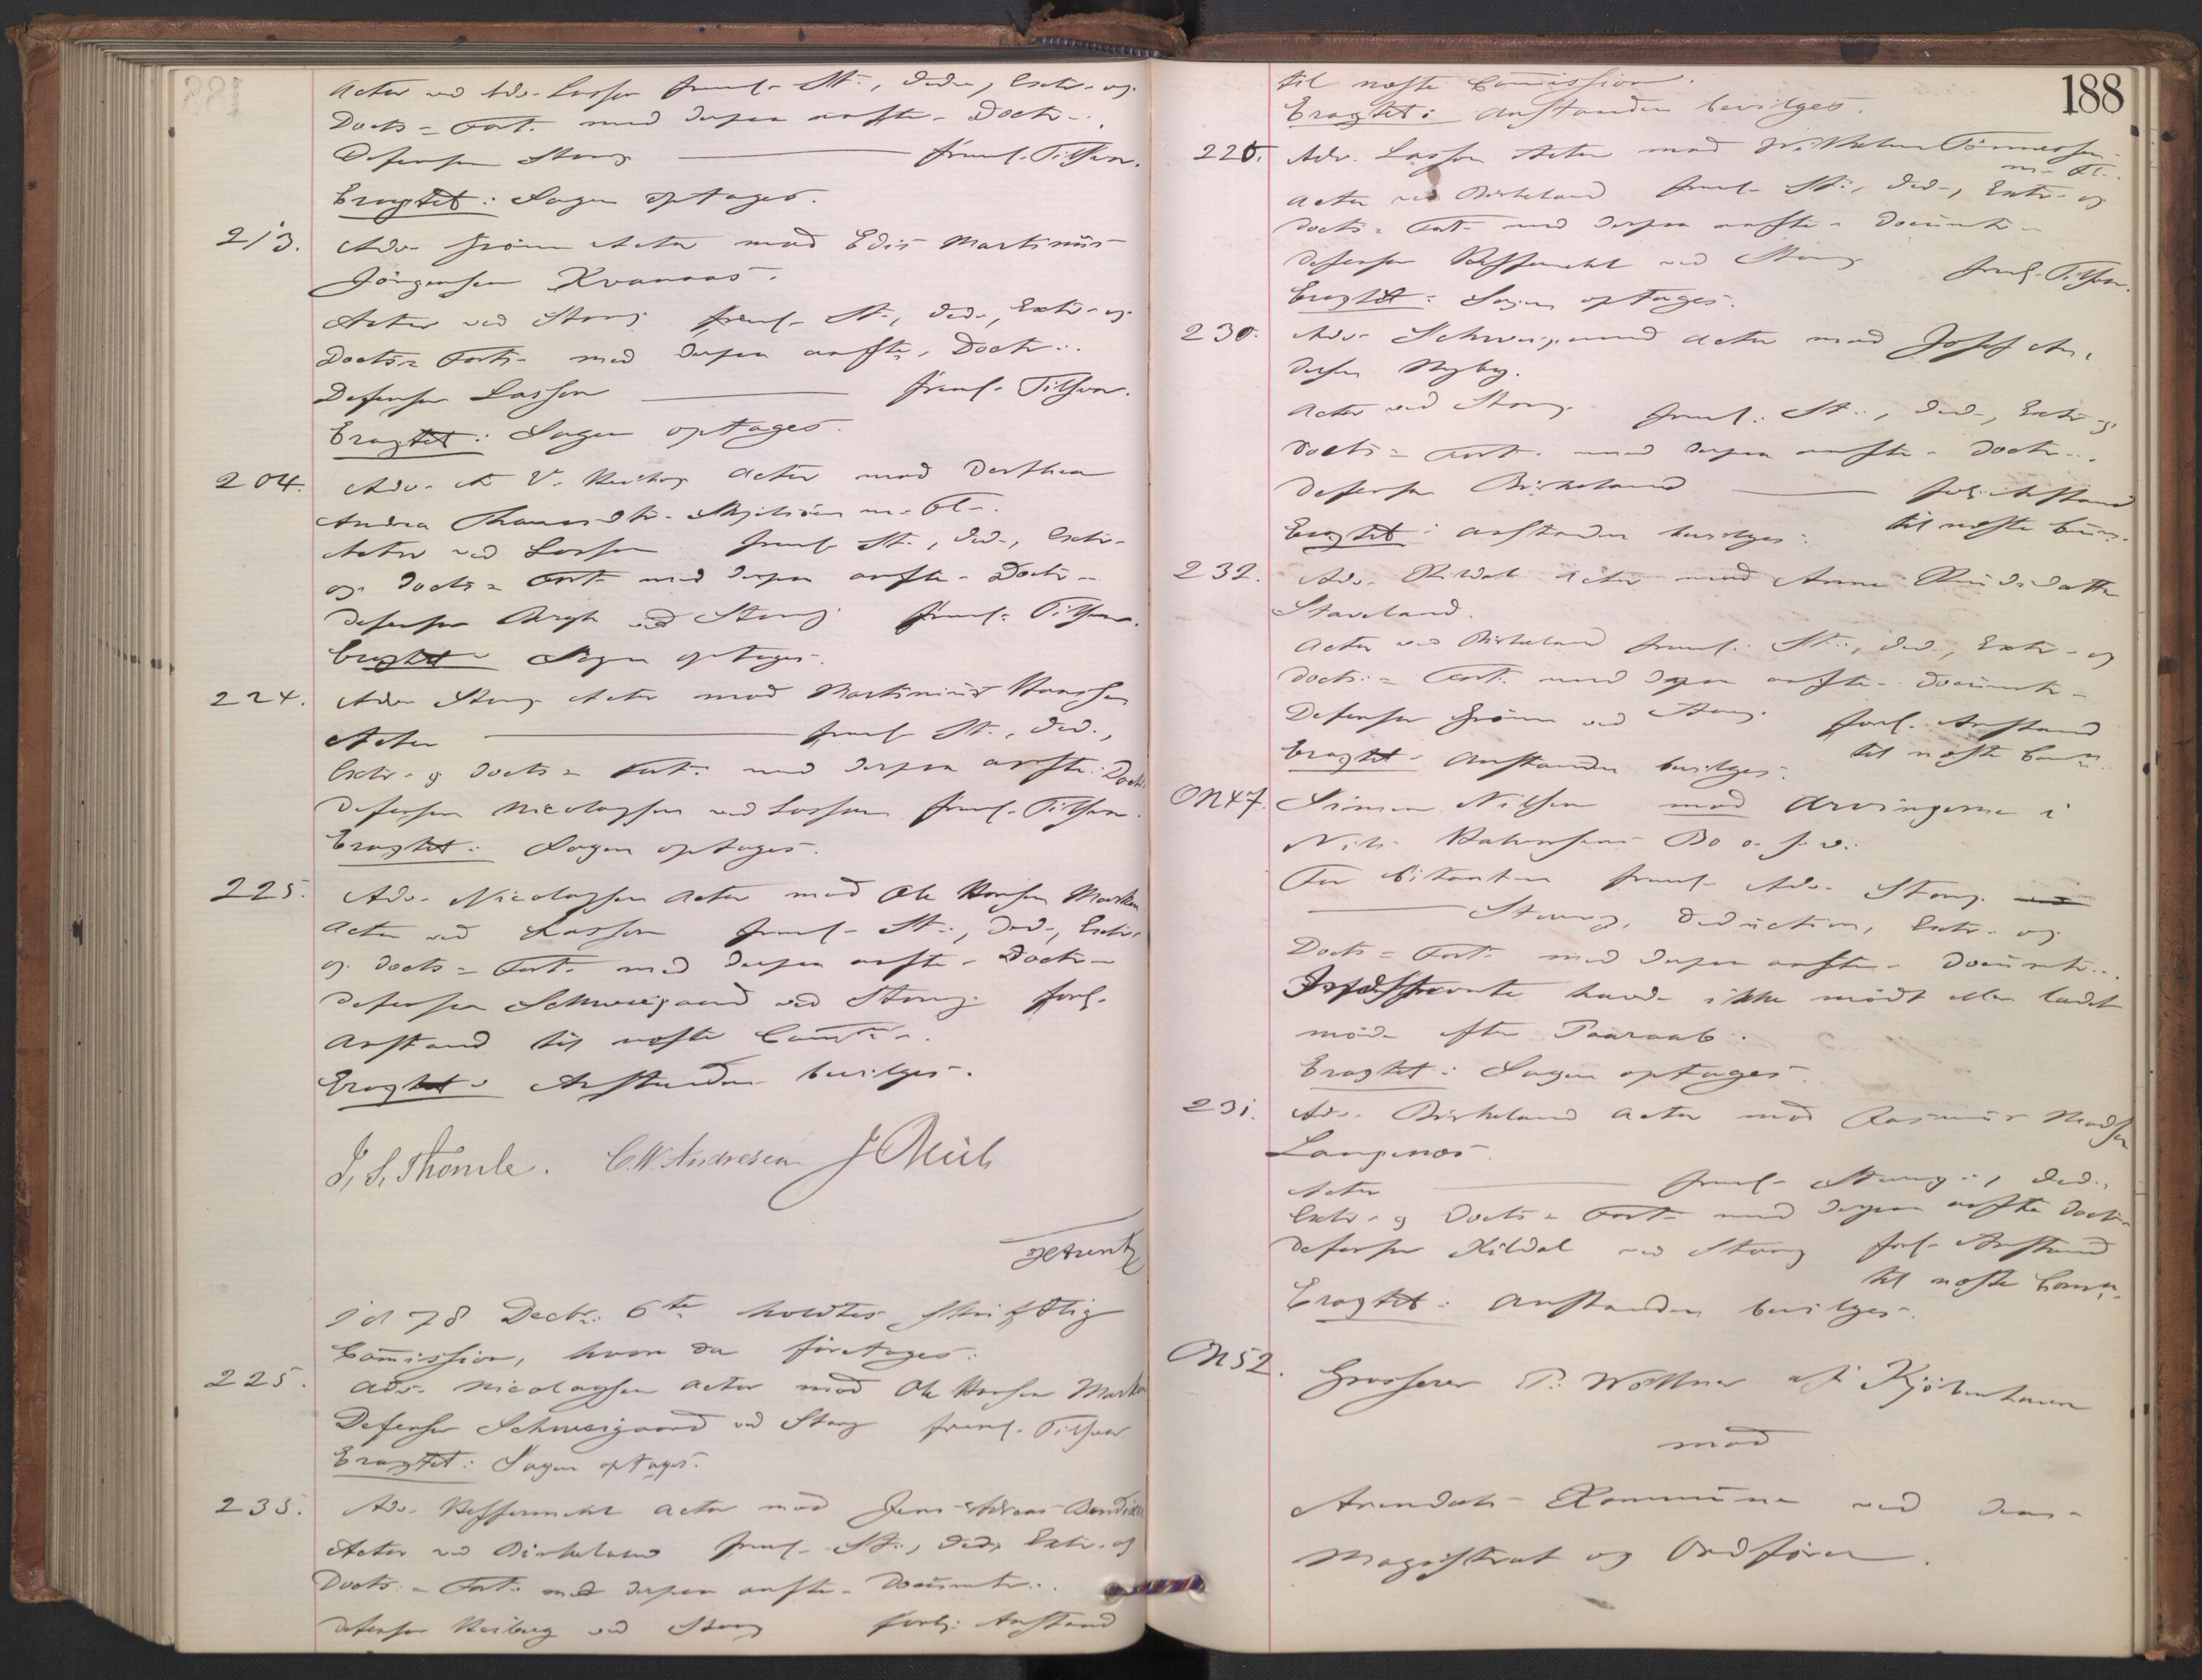 Actor ved Adv. Lasson freml. St., Ded., Extr. og
Docts = Fort. med derpaa anførte Doctr.
Defensor Stang freml. Tilsvar.
Eragtet: Sagen optages.
213. Adv. Grönn Actor mod Edis Martinius
Jörgensen Kvanaas.
Actor ved Stang freml. St., Ded., Extr. og
Docts = Fort. med derpaa anførte Doctr.
Defensor Lasson freml. Tilsvar.
Eragtet: Sagen optages.
204. Adv. Actor mod Dorthea
Andrea m. Fl.
Actor ved Lasson freml. St., Ded., Extr.
og Docts = Fort. med derpaa anførte Doctr.
Defensor Bergh ved Stang freml. Tilsvar.
Eragtet Sagen optages.
224. Adv. Stang Actor mod Martinius Hansen
Actor freml. St., Ded.,
Extr. og Docts = Fort. med derpaa anførte Doctr.
Defensor Nicolaysen ved Lasson freml. Tilsvar.
Eragtet: Sagen optages.
225. Adv. Nicolaysen Actor mod Ole Hansen
Actor ved Lasson freml. St., Ded., Extr.
og Docts = Fort. med derpaa anførte Doctr.
Defensor Schweigaard ved Stang forl.
Anstand til næste
Eragtet: Anstanden bevilges.
J. S. Thomle. C.W. Andresen
1878 Decbr. 6te holdtes skriftlig
Commission, hvor da foretoges:
225. Adv. Nicolaysen Actor mod Ole Hansen
Defensor Schweigaard ved Stang freml. Tilsvar
Eragtet: Sagen optages.
235. Adv. Actor mod Jens Andreas
Actor ved Birkeland freml. St., Ded., Extr. og
Docts = Fort. med derpaa anførte Documenter.
Defensor Heiberg ved Stang forl. Anstand
188
til næste Commission.
Eragtet: Anstanden bevilges.
Adv. Lasson Actor mod Vilhelm Tönnesen
m. Fl.
Actor ved Birkeland freml. St., Ded., Extr. og
Docts = Fort. med derpaa anførte Documenter
Defensor ved Stang freml. Tilsvar.
Eragtet: Sagen optages.
230. Adv. Schweigaard Actor mod Josef An-
dersen Nyby.
Actor ved Stang freml. St., Ded., Extr. og
Docts = Fort. med derpaa anførte Docter.
Defensor Birkeland forl. Anstand
til næste
Eragtet: Anstanden bevilges.
232. Adv. Kildal Actor mod Anne
Staveland.
Actor ved Birkeland freml. St., Ded., Extr. og
Docts = Fort. med derpaa anførte Documenter
Defensor Grönn ved Stang forl. Anstand
til næste
Eragtet: Anstanden bevilges.
ON47. Simen Nilsen mod Arvingerne i
Nils Halvorsens Bo o. s. v.
For Citanten freml. Adv. Stang
Stevning, Deduction, Extr. og
Docts = Fort. med derpaa anførte Documenter.
havde ikke mödt eller ladet
möde efter Paaraab.
Eragtet: Sagen optages.
231. Adv. Birkeland Actor mod Rasmus Madsen
Langenæs.
Actor freml. Stevng., Ded.,
Extr. og Docts = Fort. med derpaa anførte Doctr.
Defensor Kildal ved Stang forl. Anstand
til næste Comm.
Eragtet: Anstanden bevilges.
ON52. Grosserer P. Wöllner af Kjöbenhavn
mod
Arendals Kommune ved dens
Magistrat og Ordförer.